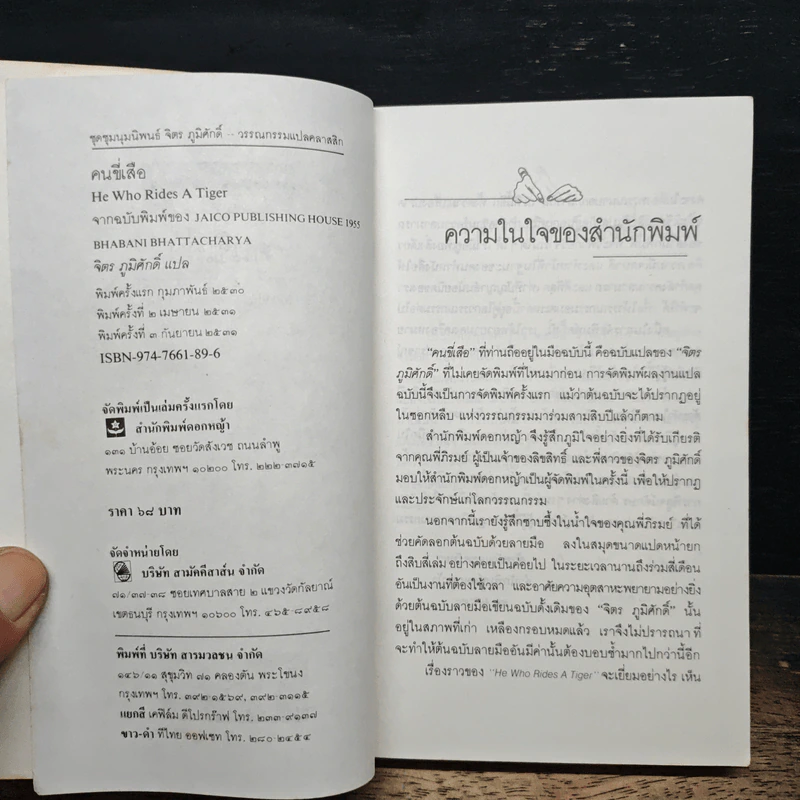 ชุดชุมนุมนิพนธ์ จิตร ภูมิศักดิ์ -- วรรณกรรมแปลคลาสสิก
คนขี่เสือ
He Who Rides A Tiger
จากฉบับพิมพ์ของ JAICO PUBLISHING HOUSE 1955
BHABANI BHATTACHARYA
จิตร ภูมิศักดิ์ แปล
พิมพ์ครั้งแรก กุมภาพันธ์ ๒๕๓๐
พิมพ์ครั้งที่ ๒ เมษายน ๒๕๓๑
พิมพ์ครั้งที่ ๓ กันยายน ๒๕๓๑
ISBN-974-7661-89-6
จัดพิมพ์เป็นเล่มครั้งแรกโดย
สำนักพิมพ์ดอกหญ้า
๑๓๑ บ้านอ้อย ซอยวัดสังเวช ถนนลำพู
พระนคร กรุงเทพฯ ๑๐๒๐๐ โทร. ๒๒๒-๓๗๑๕
ราคา ๖๘ บาท
จัดจำหน่ายโดย
บริษัท สามัคคีสาส์น จำกัด
๗๑/๓๗-๓๘ ซอยเทศบาลสาย ๒ แขวงวัดกัลยาณ์
เขตธนบุรี กรุงเทพฯ ๑๐๖๐๐ โทร. ๔๖๕-๘๙๕๘
พิมพ์ที่ บริษัท สารมวลชน จำกัด
๑๔๖/๑๑ สุขุมวิท ๗๑ คลองตัน พระโขนง
กรุงเทพฯ โทร. ๓๙๒-๑๕๖๙, ๓๙๒-๓๑๑๕
แยกสี เคฟิล์ม ดีโปรกร๊าฟ โทร. ๒๓๓-๙๑๓๗
ขาว-ดำ ทีไทย ออฟเซท โทร. ๒๘๐-๒๔๕๔
ความในใจของสำนักพิมพ์
"คนขี่เสือ" ที่ท่านถืออยู่ในมือฉบับนี้ คือฉบับแปลของ "จิตร
ภูมิศักดิ์" ที่ไม่เคยจัดพิมพ์ที่ไหนมาก่อน การจัดพิมพ์ผลงานแปล
ฉบับนี้จึงเป็นการจัดพิมพ์ครั้งแรก แม้ว่าต้นฉบับจะได้ปรากฏอยู่
ในซอกหลืบ แห่งวรรณกรรมมาร่วมสามสิบปีแล้วก็ตาม
สำนักพิมพ์ดอกหญ้า จึงรู้สึกภูมิใจอย่างยิ่งที่ได้รับเกียรติ
จากคุณพี่ภิรมย์ ผู้เป็นเจ้าของลิขสิทธิ์ และพี่สาวของจิตร ภูมิศักดิ์
มอบให้สำนักพิมพ์ดอกหญ้าเป็นผู้จัดพิมพ์ในครั้งนี้ เพื่อให้ปรากฏ
และประจักษ์แก่โลกวรรณกรรม
นอกจากนี้เรายังรู้สึกซาบซึ้งในน้ำใจของคุณพี่ภิรมย์ ที่ได้
ช่วยคัดลอกต้นฉบับด้วยลายมือ ลงในสมุดขนาดแปดหน้ายก
ถึงสิบสี่เล่ม อย่างค่อยเป็นค่อยไป ในระยะเวลานานถึงร่วมสี่เดือน
อันเป็นงานที่ต้องใช้เวลา และอาศัยความอุตสาหะพยายามอย่างยิ่ง
ด้วยต้นฉบับลายมือเขียนฉบับดั้งเดิมของ "จิตร ภูมิศักดิ์" นั้น
อยู่ในสภาพที่เก่า เหลืองกรอบหมดแล้ว เราจึงไม่ปรารถนาที่
จะทำให้ต้นฉบับลายมืออันมีค่านั้นต้องบอบช้ำมากไปกว่านี้อีก
เรื่องราวของ "He Who Rides A Tiger" จะเยี่ยมอย่างไร เห็น